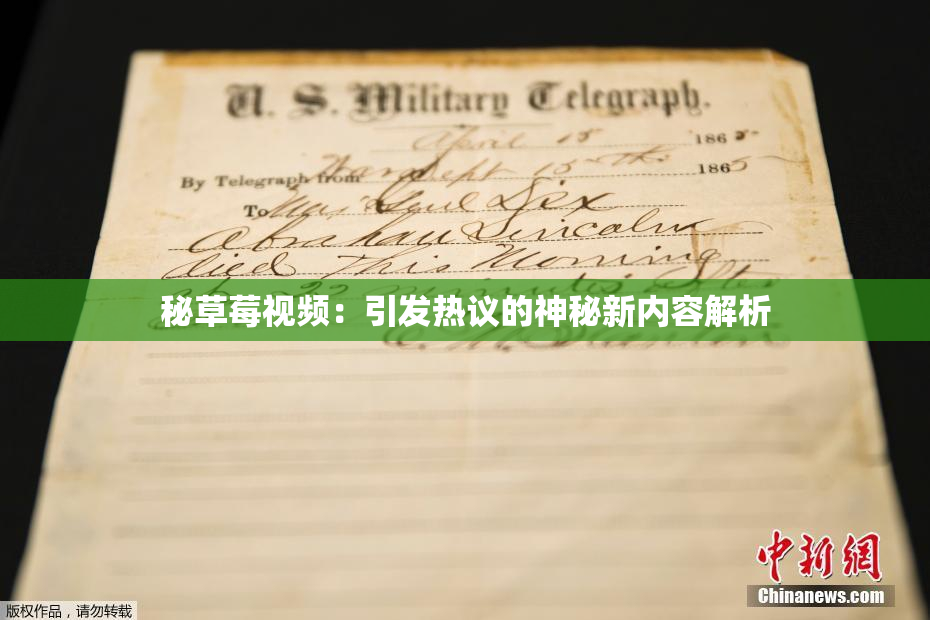 U. S. Military Telegraph.
April 15 1865
By Telegraph from War Dept 15th 1865
To Maj Genl Dix
Abraham Lincoln
died This Morning
22 minutes after
秘草莓视频：引发热议的神秘新内容解析
E. M. Stanton
中新网
Chinanews.com
版权作品，请勿转载